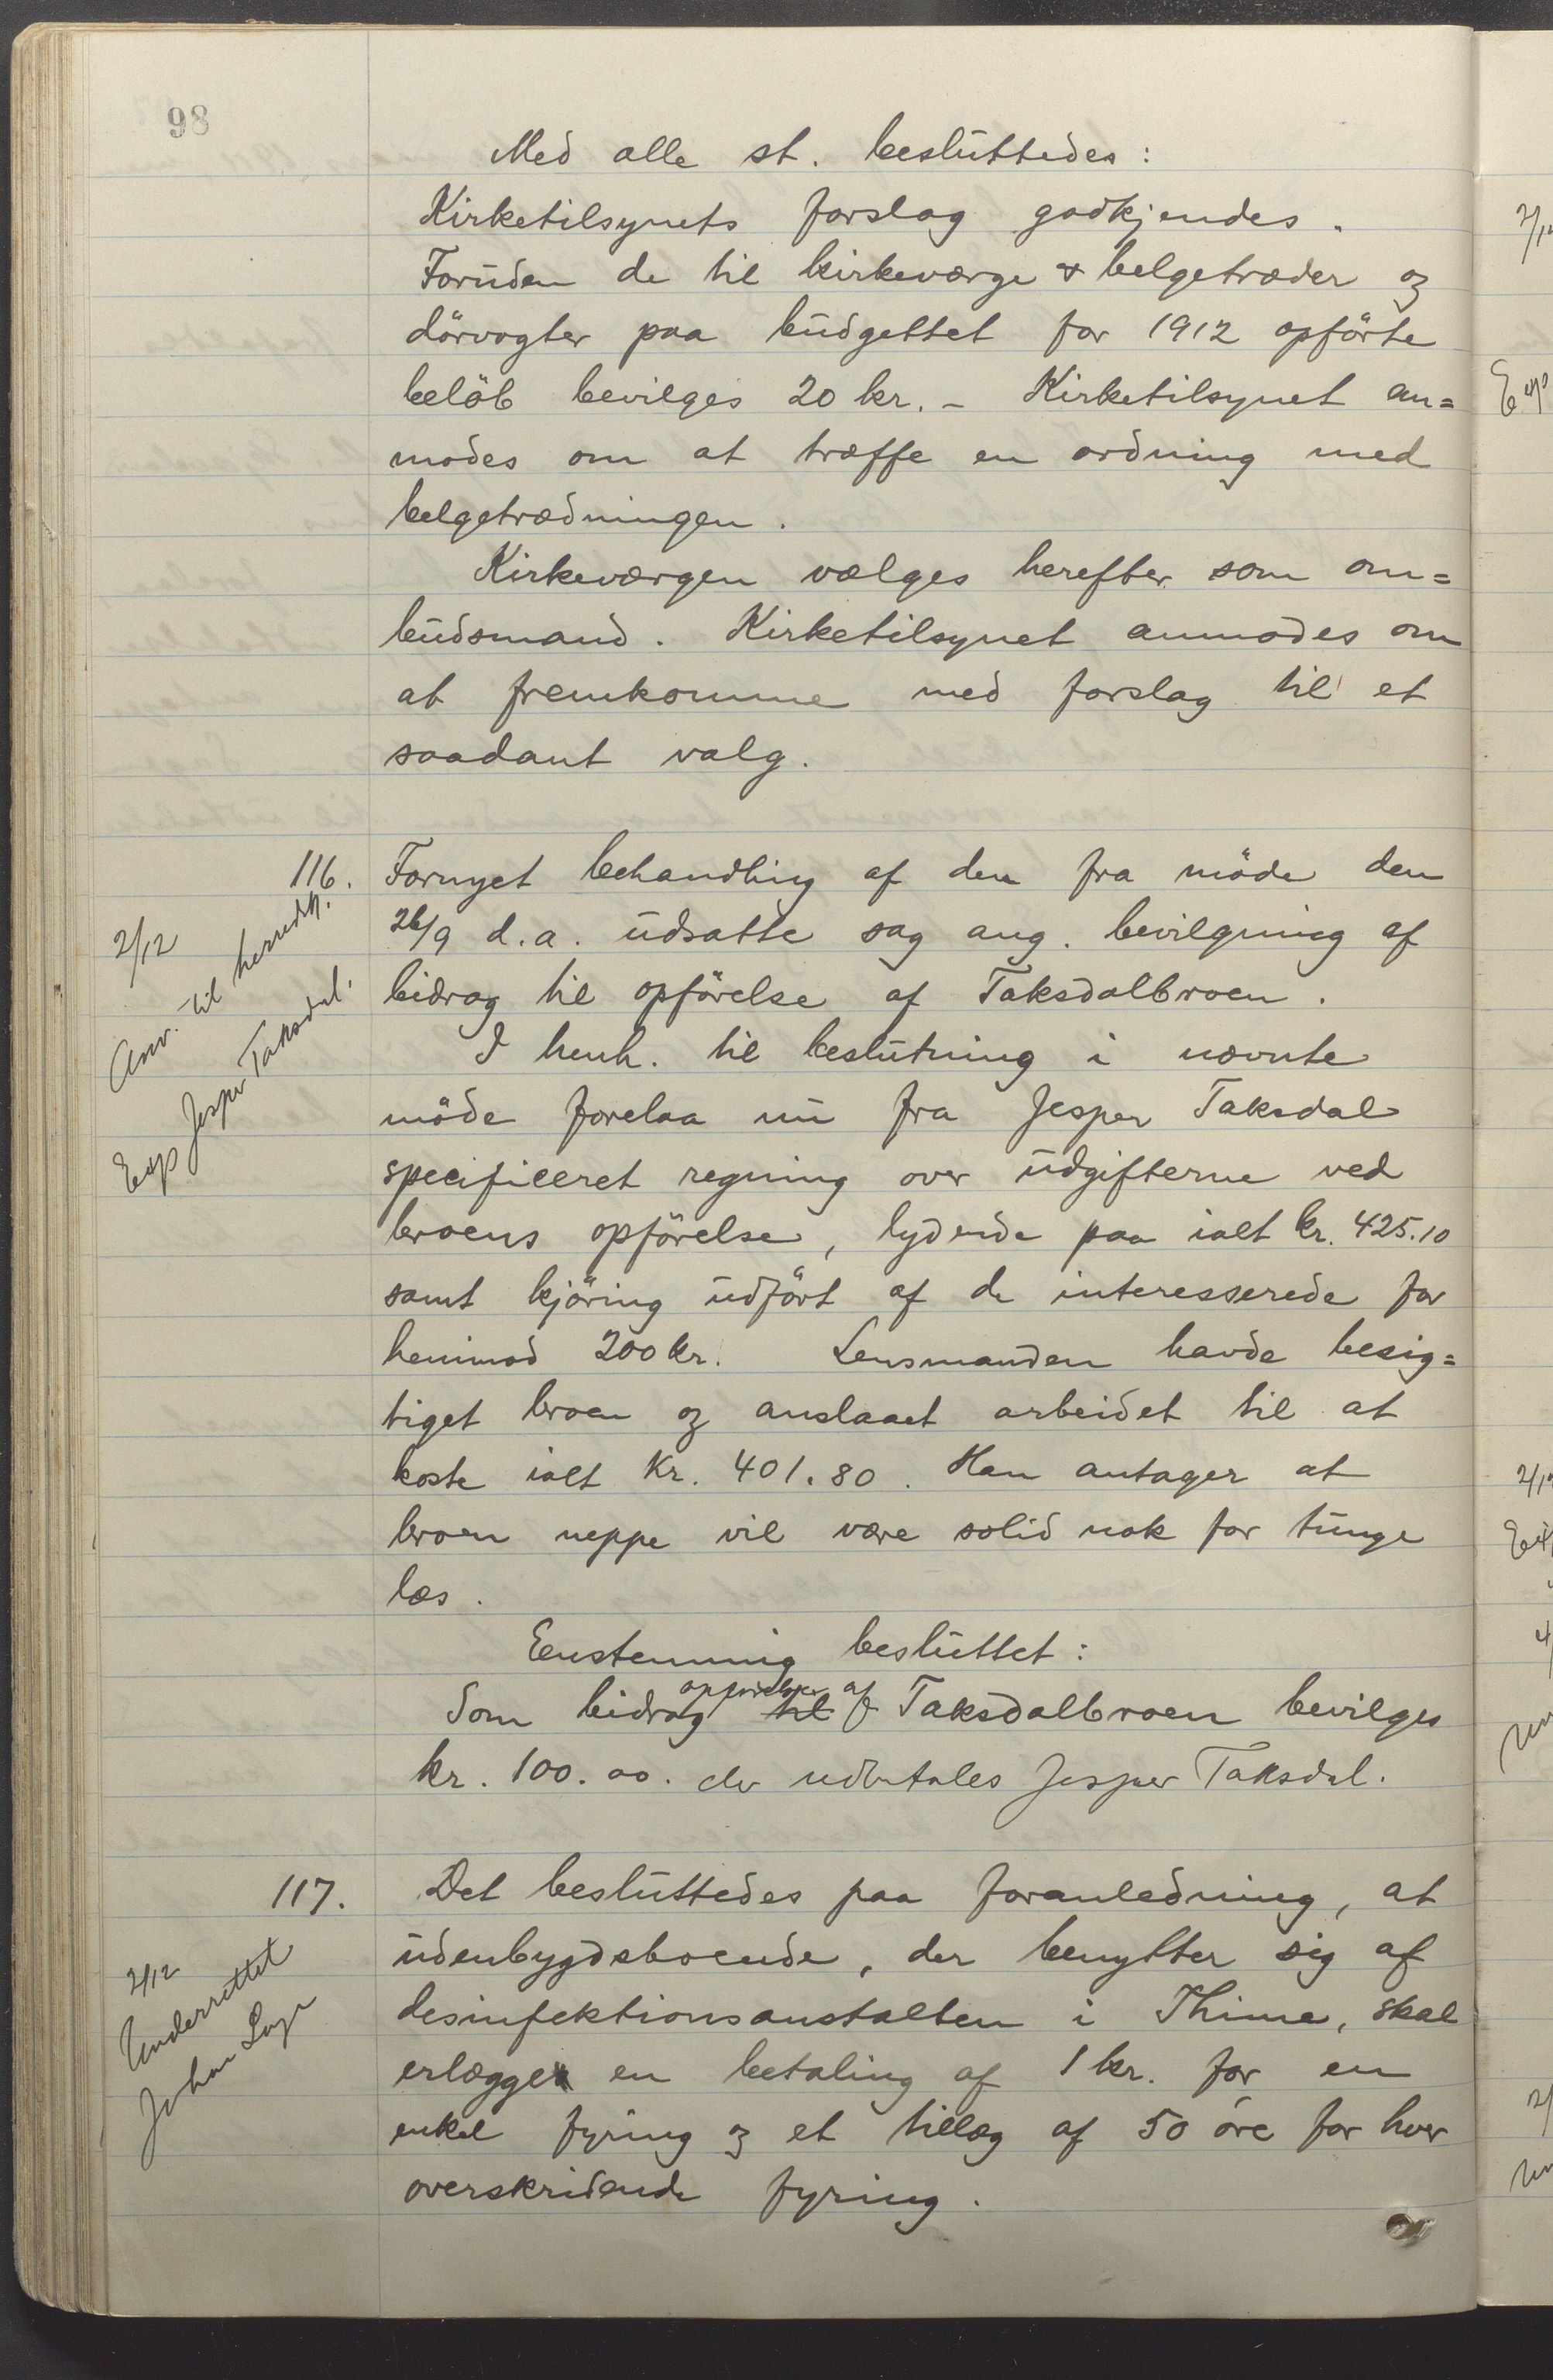 98
Med alle st. besluttedes:
Kirketilsynets forslag godkjendes.
Foruden de til kirkeværge & belgetræder og
dörvogter paa budgettet for 1912 opförte
belöb bevilges 20 kr. – Kirketilsynet an=
modes om at træffe en ordning med
belgetrædningen.
Kirkeværgen vælges herefter som om=
budsmand. Kirketilsynet anmodes om
at fremkomme med forslag til et
saadant valg.
116.
2/12
Anv. til herredsk.
Exp Jesper Taksdal.
Fornyet behandling af den fra möde den
26/9 d.a. udsatte sag ang. bevilgning af
bidrag til opförelse af Taksdalbroen.
I henh. til beslutning i nævnte
möde forelaa nu fra Jesper Taksdal
specificeret regning over udgifterne ved
broens opförelse, lydende paa ialt kr. 425.10
samt kjöring udfört af de interesserede for
henimod 200 kr. Lensmanden havde besig=
tiget broen og anslaaet arbeidet til at
koste ialt Kr. 401.80. Han antager at
broen neppe vil være solid nok for tunge
læs.
Enstemmig besluttet:
Som bidrag til opförelse af Taksdalbroen bevilges
kr. 100.00. der udbetales Jesper Taksdal.
117.
2/12
Underrettet
Johan
Det besluttedes paa foranledning, at
udenbygdsboende, der benytter sig af
desinfektionsanstalten i Thime, skal
erlægge en betaling af 1 kr. for en
enkel fyring og et tillæg af 50 öre for hver
overskridende fyring.